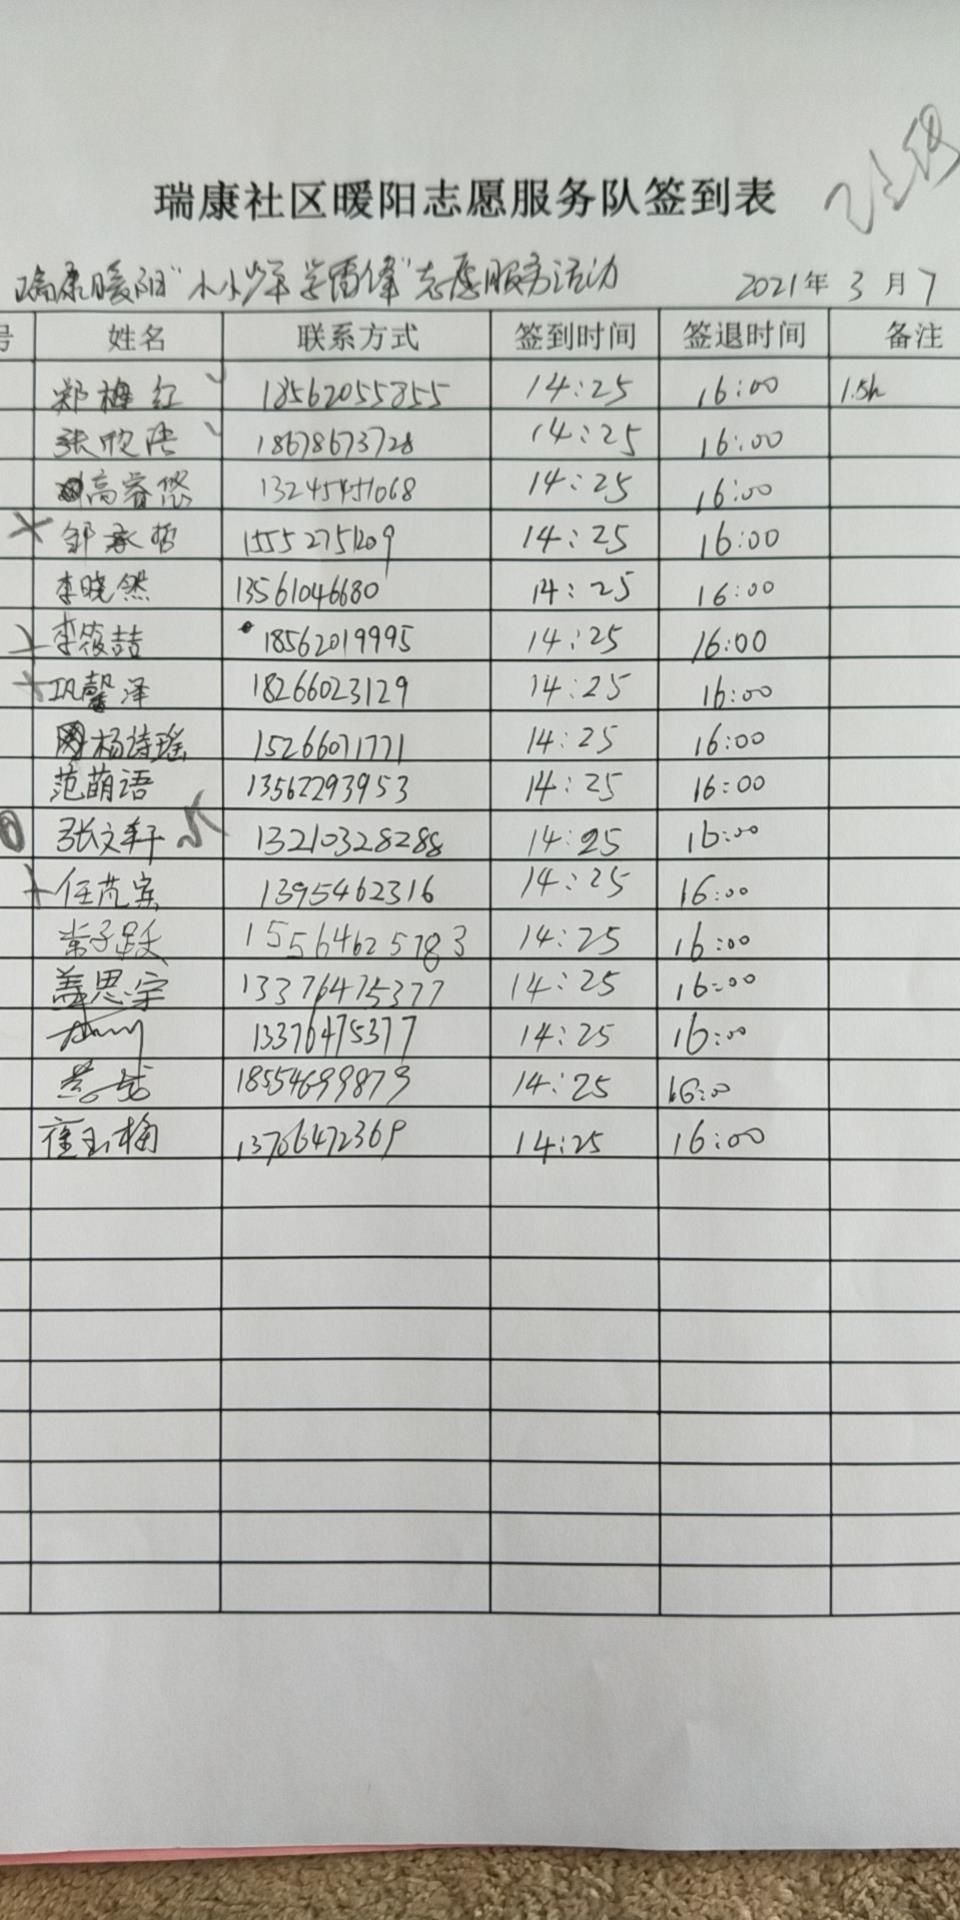 瑞康社区暖阳志愿服务队签到表
瑞康暖阳"小小少年学雷锋"志愿服务活动 2021年 3 月 7
号 姓名 联系方式 签到时间 签退时间 备注
郑梅红 18562055855 14:25 16:00 1.5h
张欣浩 18678673728 14:25 16:00
高睿悠 13245451068 14:25 16:00
邹承哲 15552751209 14:25 16:00
李晓然 13561046680 14:25 16:00
李筱喆 18562019995 14:25 16:00
巩馨泽 18266023129 14:25 16:00
杨诗瑶 15266071771 14:25 16:00
范萌语 13562293953 14:25 16:00
张文轩 13210328288 14:25 16:00
任芃宾 1395462316 14:25 16:00
常子跃 15564625783 14:25 16:00
盖思宗 13376475377 14:25 16:00
13376475377 14:25 16:00
18554699879 14:25 16:00
崔玉梅 13706472369 14:25 16:00